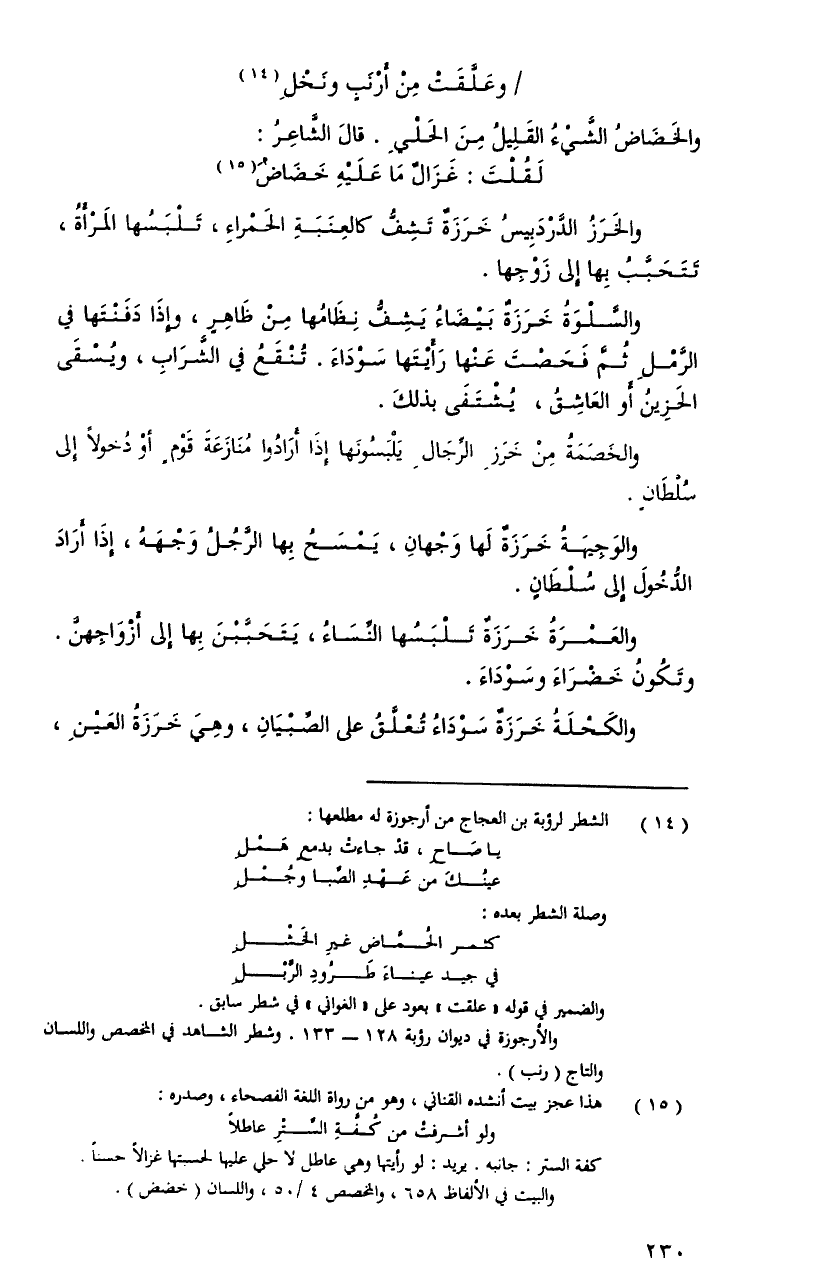 / وعَلَّقَتْ مِنْ أَرْنَبٍ ونَخْلِ (١٤)
والخَضَاضُ الشَّيْءُ القَلِيلُ مِنَ الحَلْيِ . قالَ الشَّاعِرُ :
لَقُلْتَ : غَزَالٌ مَا عَلَيْهِ خَضَاضُ (١٥)
والخَرَزُ الدَّرْدَبِيسُ خَرَزَةٌ تَشِفُّ كالعِنَبَةِ الحَمْراءِ ، تَلْبَسُها المَرْأَةُ ،
تَتَحَبَّبُ بِها إلى زَوْجِها .
والسَّلْوَةُ خَرَزَةٌ بَيْضَاءُ يَشِفُّ نِظَامُها مِنْ ظَاهِرٍ ، وإذَا دَفَنْتَها في
الرَّمْلِ ثُمَّ فَحَصْتَ عَنْها رَأَيْتَها سَوْدَاءَ . تُنْقَعُ في الشَّرَابِ ، ويُسْقَى
الحَزِينُ أو العَاشِقُ ، يُشْتَفَى بذلكَ .
والخَصَمَةُ مِنْ خَرَزِ الرِّجَالِ يَلْبَسُونَها إذَا أَرَادُوا مُنَازَعَةَ قَوْمٍ أوْ دُخولاً إلى
سُلْطَانٍ .
والوَجِيهَةُ خَرَزَةٌ لَها وَجْهانِ ، يَمْسَحُ بِها الرَّجُلُ وَجْهَهُ ، إذَا أرَادَ
الدُّخُولَ إلى سُلْطَانٍ .
والعَمْرَةُ خَرَزَةٌ تَلْبَسُها النِّسَاءُ ، يَتَحَبَّبْنَ بِها إلى أَزْوَاجِهِنَّ .
وتَكُونُ خَضْرَاءَ وسَوْدَاءَ .
والكَحْلَةُ خَرَزَةٌ سَوْدَاءُ تُعْلَّقُ على الصِّبْيَانِ ، وهِيَ خَرَزَةُ العَيْنِ ،
(١٤) الشطر لرؤبة بن العجاج من أرجوزة له مطلعها :
يا صَاحِ ، قدْ جاءتْ بدمعٍ هَمْلِ
عينُكَ من عَهْدِ الصِّبا وجُمْلِ
وصلة الشطر بعده :
كثمر الحُمَّاض غيرِ الخَشْلِ
في جيد عيناءَ طَرُودِ الرَّبْلِ
والضمير في قوله « علقت » يعود على « الغواني » في شطر سابق .
والأرجوزة في ديوان رؤبة ١٢٨ – ١٣٣ . وشطر الشاهد في المخصص واللسان
والتاج ( رنب ) .
(١٥) هذا عجز بيت أنشده القناني ، وهو من رواة اللغة الفصحاء ، وصدره :
ولو أشرفتْ من كُفَّةِ السِّتْرِ عاطلاً
كفة الستر : جانبه . يريد : لو رأيتها وهي عاطل لا حلي عليها لحسبتها غزالاً حسناً .
والبيت في الألفاظ ٦٥٨ ، والمخصص ٤ /٥٠ ، واللسان ( خضض ) .
٢٣٠